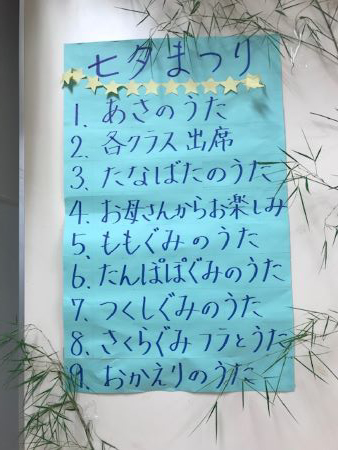 七夕まつり
1、あさのうた
2、各クラス出席
3、たなばたのうた
4、お母さんからお楽しみ
5、ももぐみのうた
6、たんぽぽぐみのうた
7、つくしぐみのうた
8、さくらぐみフラとうた
9、おかえりのうた